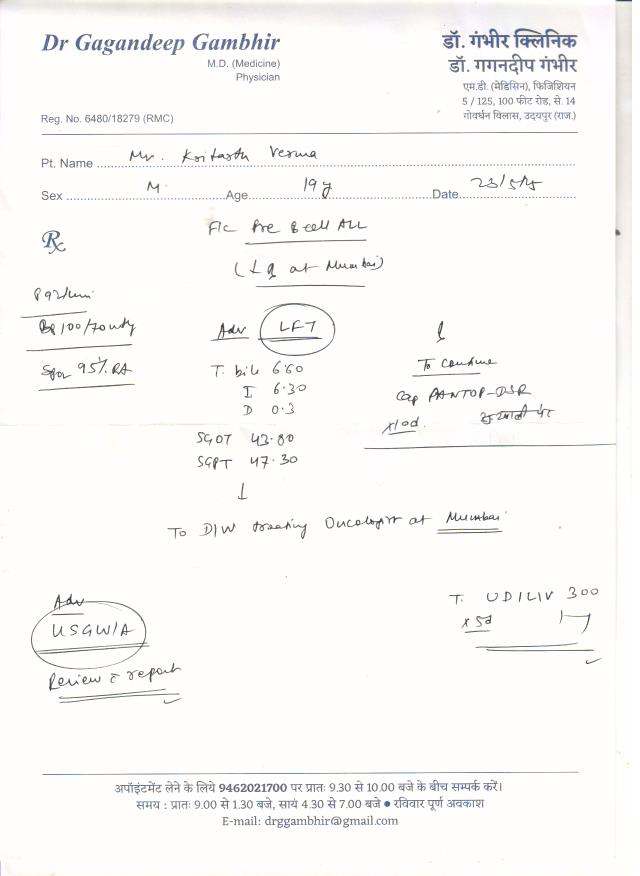 Dr Gagandeep Gambhir
M.D. (Medicine)
Physician
Reg. No. 6480/18279 (RMC)
डॉ. गंभीर क्लिनिक
डॉ. गगनदीप गंभीर
एम.डी. (मेडिसिन), फिजिशियन
5 / 125, 100 फीट रोड, से. 14
गोवर्धन विलास, उदयपुर (राज.)
Pt. Name Mr. Kritarth Verma
Sex M. Age 19 y Date 23/5/
Rx
F/c Pre B cell ALL
( at Mumbai)
P 92/min
BP 100/70
Spo2 95% RA
Adv LFT
T. bil 6.60
I 6.30
D 0.3
SGOT 43.80
SGPT 47.30
↓
To continue
Cap PANTOP-DSR
x10d. खाली पेट
To D/W treating Oncologist at Mumbai
Adv
USG W/A
Review c reports
T. UDILIV 300
x 5d
अपॉइंटमेंट लेने के लिये 9462021700 पर प्रातः 9.30 से 10.00 बजे के बीच सम्पर्क करें।
समय : प्रातः 9.00 से 1.30 बजे, सायं 4.30 से 7.00 बजे ● रविवार पूर्ण अवकाश
E-mail: drggambhir@gmail.com